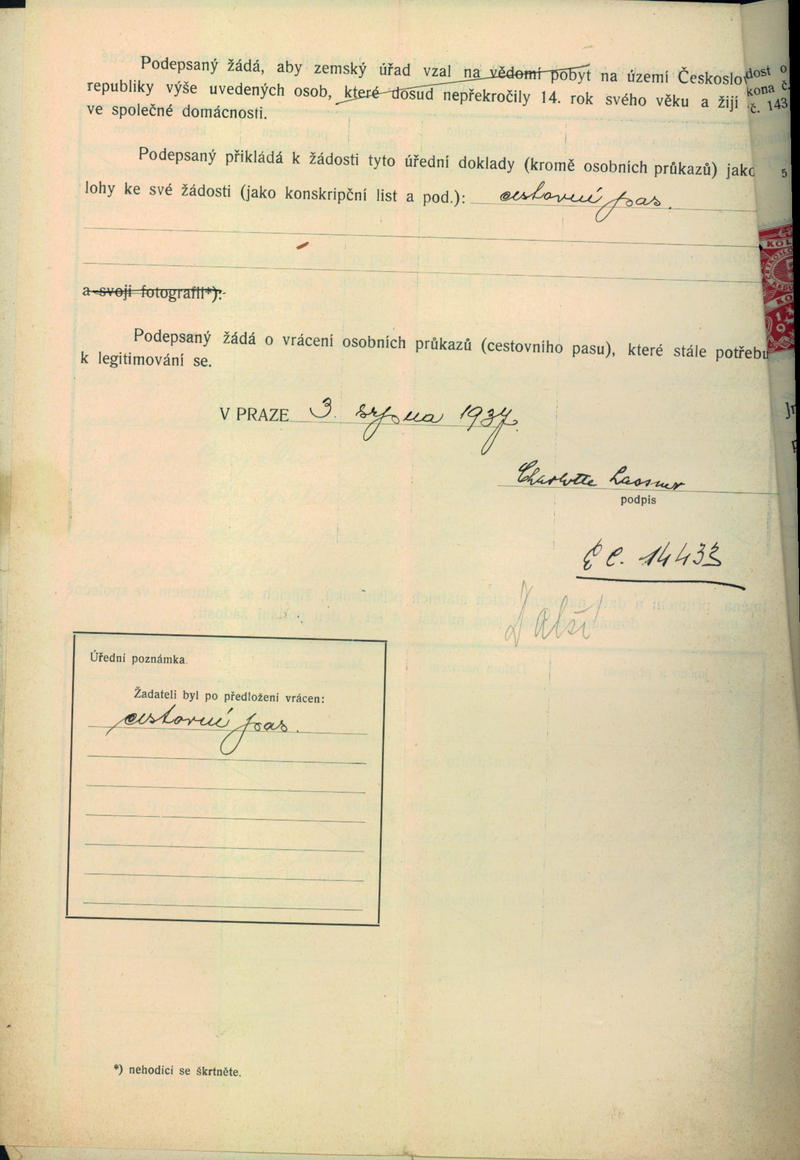 Podepsaný žádá, aby zemský úřad vzal na vědomí pobyt na území Českoslov
republiky výše uvedených osob, které dosud nepřekročily 14. rok svého věku a žijí
ve společné domácnosti.
Podepsaný přikládá k žádosti tyto úřední doklady (kromě osobních průkazů) jako
lohy ke své žádosti (jako konskripční list a pod.): cestovní pas.
a svoji fotografii*).
Podepsaný žádá o vrácení osobních průkazů (cestovního pasu), které stále potřebu
k legitimování se.
V PRAZE 3. srpna 1937.
Charlotte Lassner
podpis
č. 14433
Další
Úřední poznámka.
Žadateli byl po předložení vrácen:
cestovní pas.
*) nehodící se škrtněte.
dost o
kona č.
č. 143
5
KOL